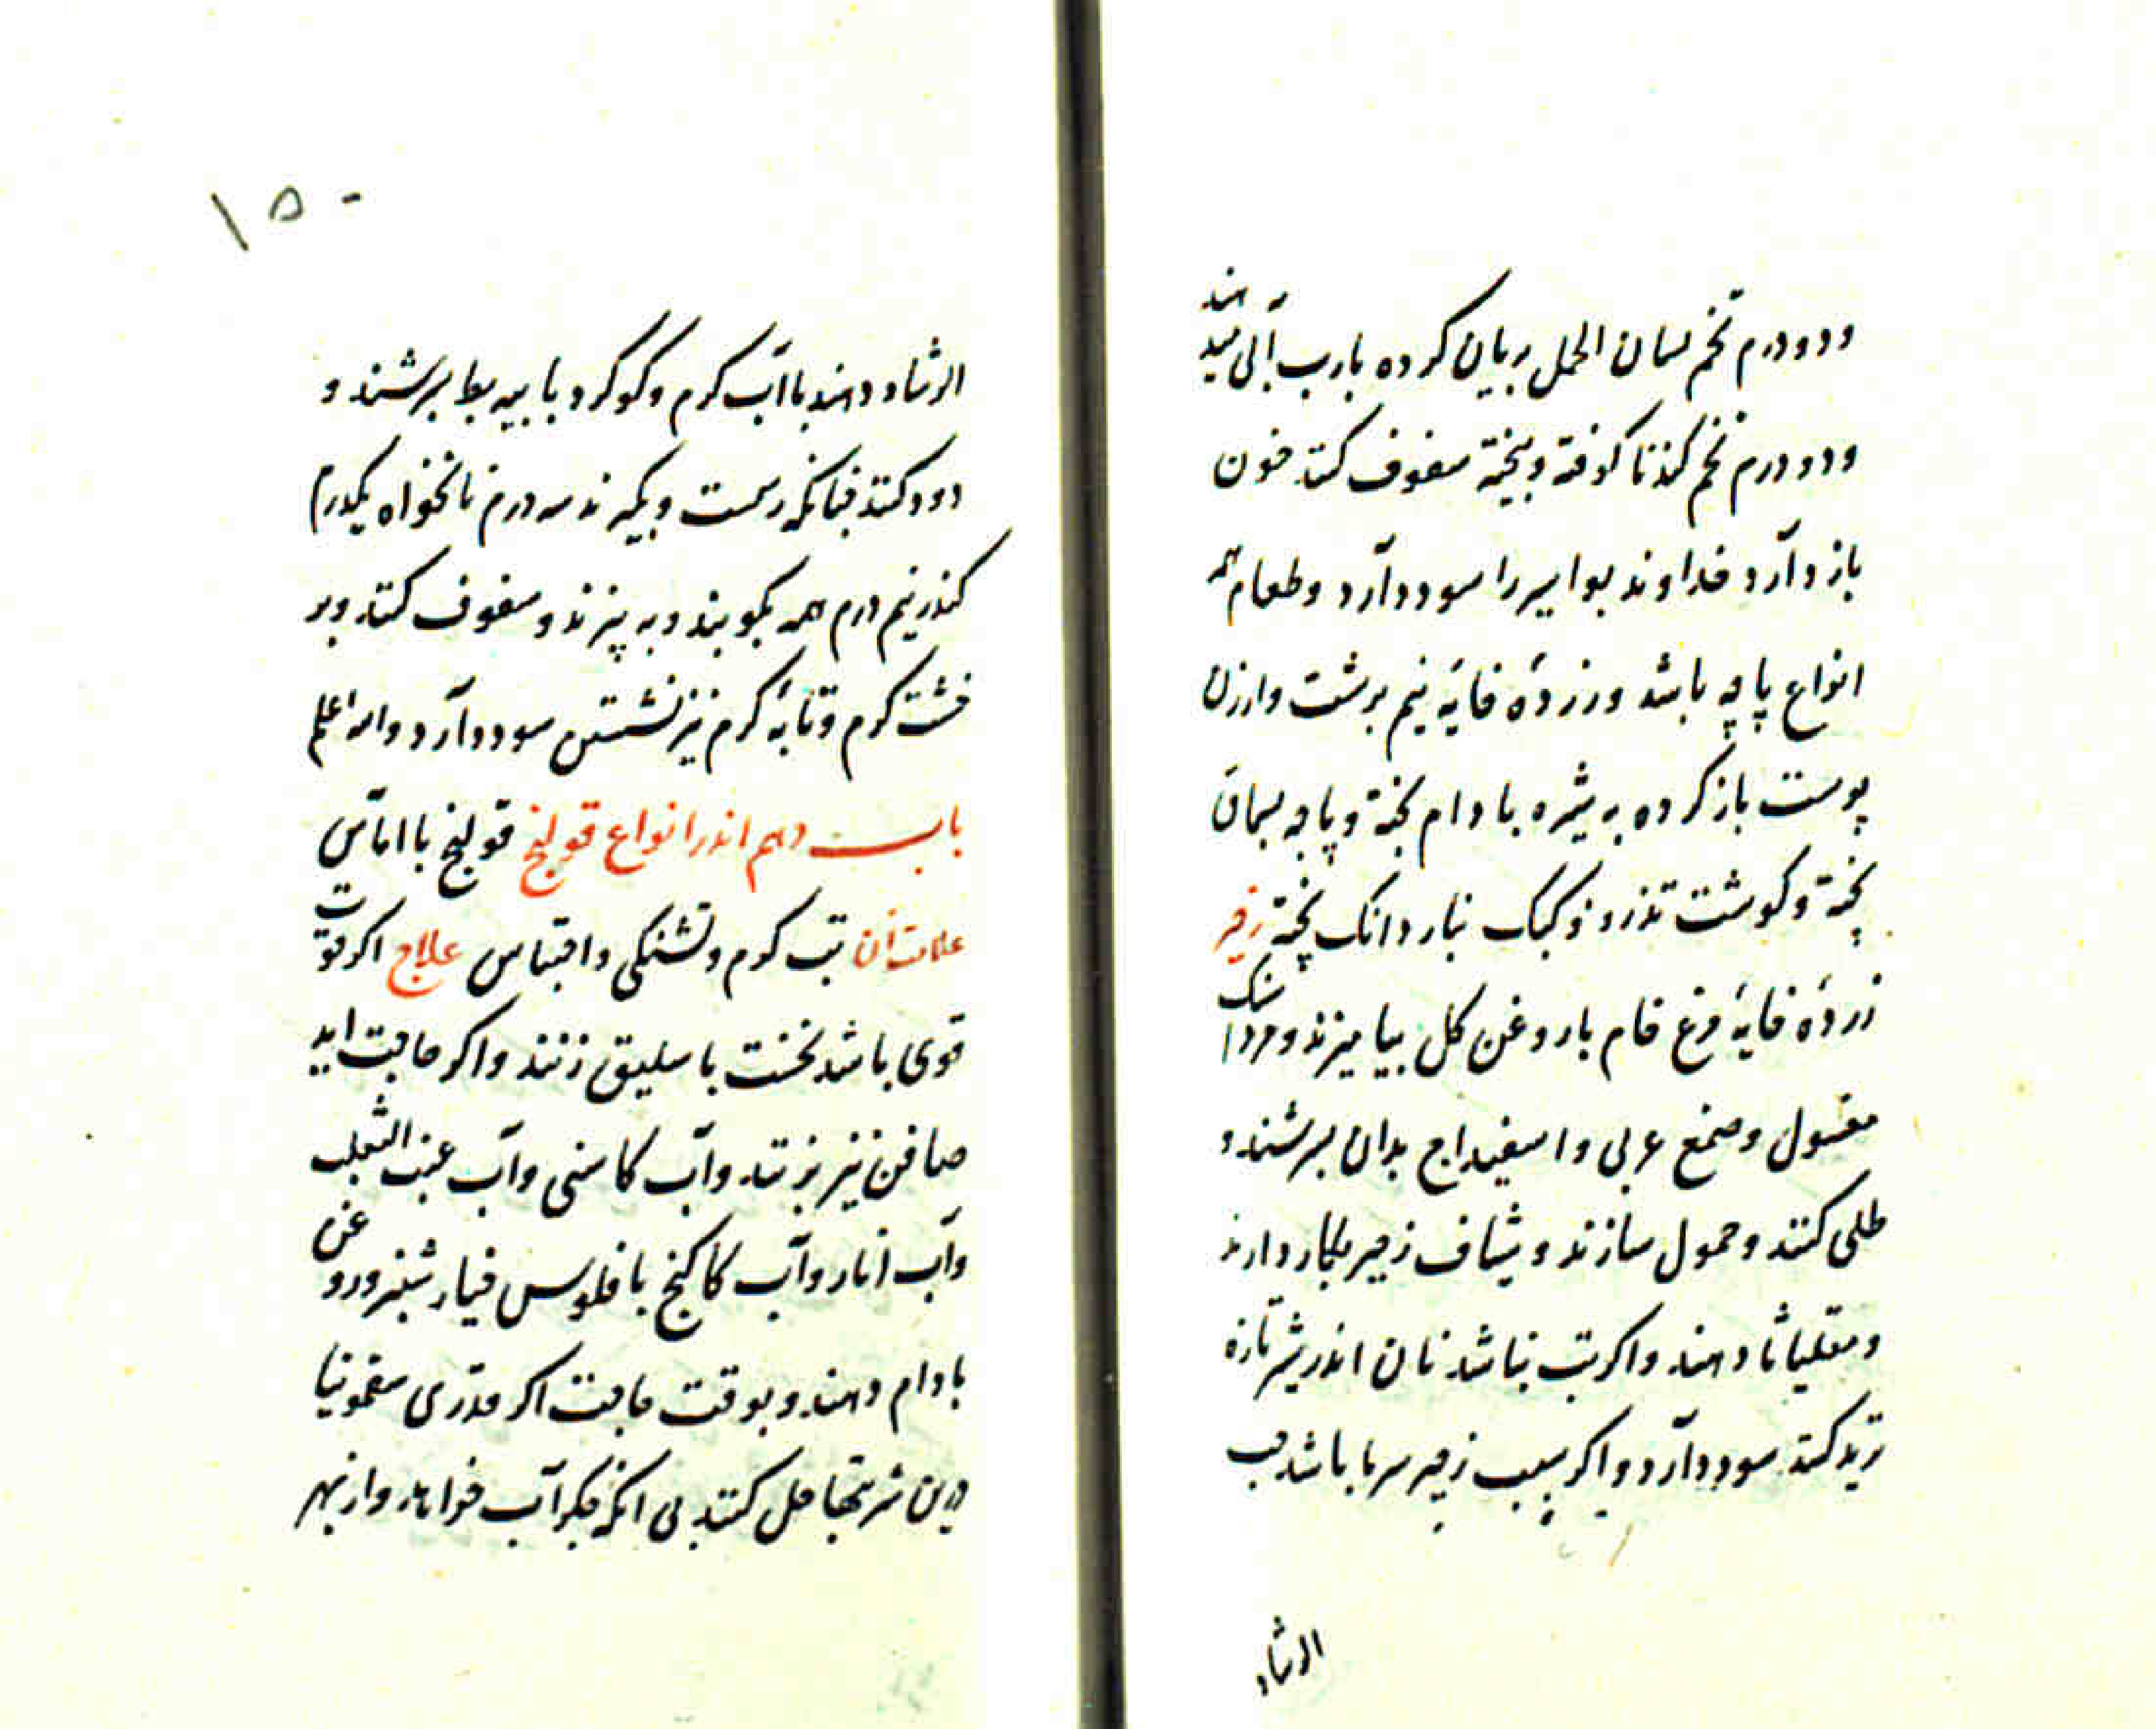 ودو درم تخم لسان الحمل بریان کرده بارب آبی میدهند
ودو درم تخم کندنا کوفته وبیخته سفوف کنند خون
باز دارد خداوند بواسیر را سود دارد وطعام همه
انواع پاچه باشد وزردهٔ خایهٔ نیم برشت وارزن
پوست باز کرده به شیره بادام پخته وپاچه بسماق
پخته وکوشت تذرو وکبک بناردانک پخته زفیر
زردهٔ خایهٔ مرغ خام باروغن کل بیامیزند ومرداسنک
مغسول وصمغ عربی واسفیداج بدان بسرشند و
طلی کنند وحمول سازند وشیاف زحیر بکار دارند
ومقلیاثا دهند واکر تب نباشد نان اندر شیر تازه
ترید کنند سود دارد واکر سبب زحیر سرما باشد حب
الرشاد
۱۵۰
الرشاد دهند باآب کرم وکوکرد با پیه بط بسرشند و
دود کنند چنانکه رسمست وبکیرند سه درم نانخواه یکدرم
کندر نیم درم همه بکوبند وبه پزند وسفوف کنند وبر
خشت کرم وتابهٔ کرم نیز نشستن سود دارد والله اعلم
باب دهم اندر انواع قولنج قولنج باآماس
علامت ان تب کرم وتشنکی واحتباس علاج اکر قوت
قوی باشد نخست باسلیق زنند واکر حاجت اید
صافن نیز بزنند وآب کاسنی وآب عنب الثعلب
وآب انار وآب کاکنج بافلوس خیار شنبر وروغن
بادام دهند وبوقت حاجت اکر قدری سقمونیا
درین شربتها حل کنند بی انکه جکر آب فراهد واز بهر